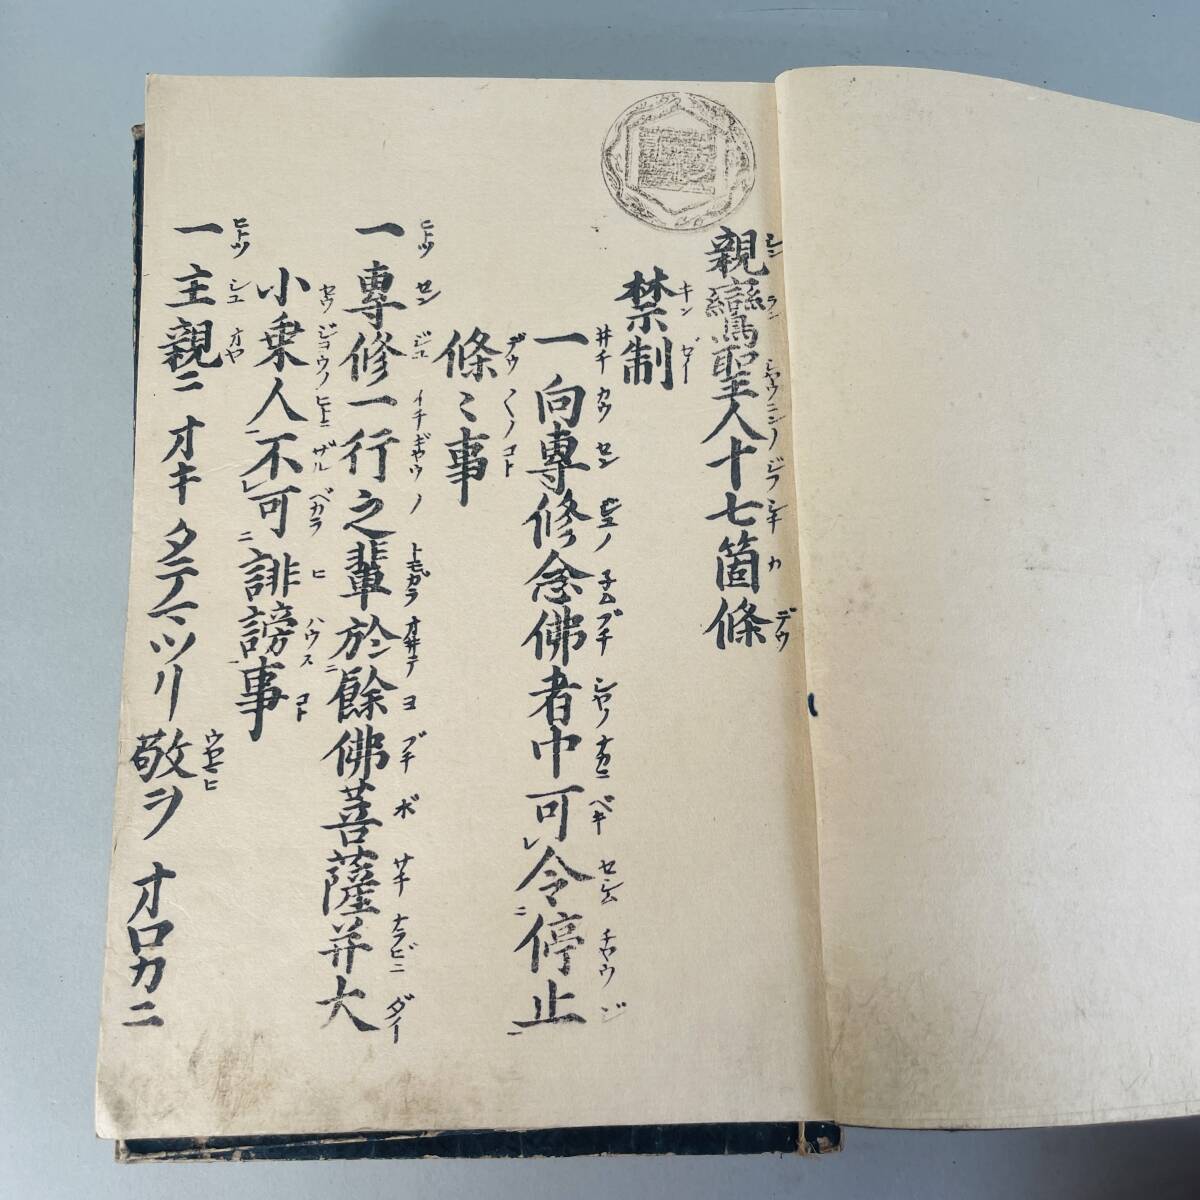 親鸞聖人十七箇條
禁制
一向專修念佛者中可令停止
條々事
一專修一行之輩於餘佛菩薩并大
小乗人不可誹謗事
一主親ニオキタテマツリ敬ヲオロカニ